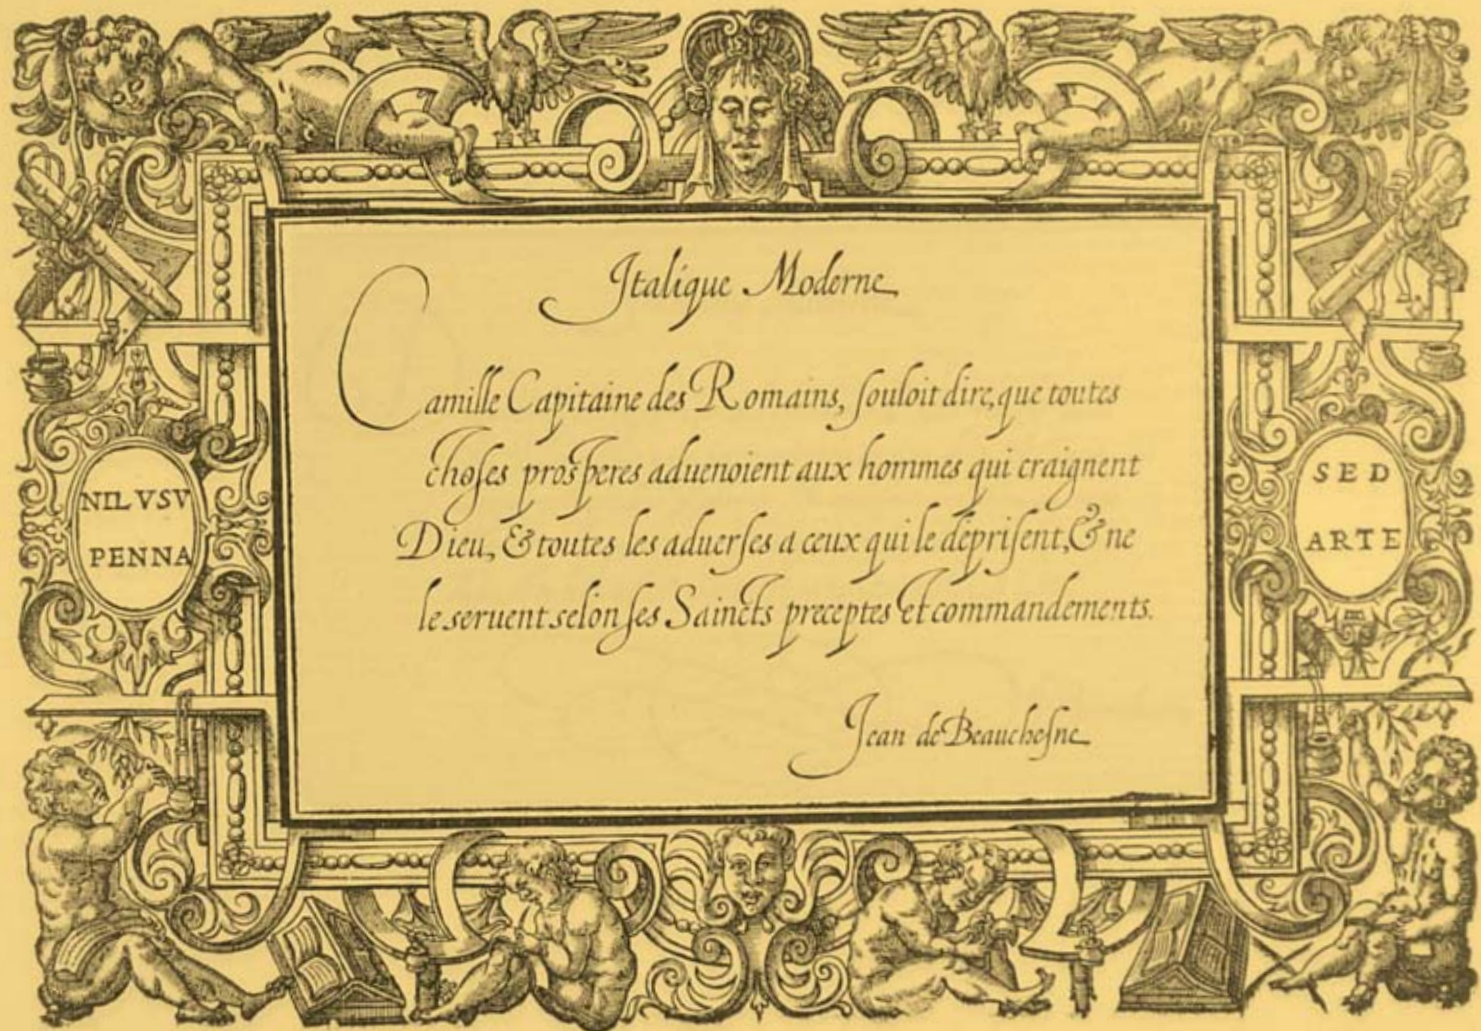 Italique Moderne
Camille Capitaine des Romains, ſouloit dire, que toutes
choſes proſperes aduenoient aux hommes qui craignent
Dieu, & toutes les aduerſes a ceux qui le depriſent, & ne
le seruent selon ſes Saincts preceptes et commandements.
Jean de Beaucheſne
NIL VSV
PENNA
SED
ARTE